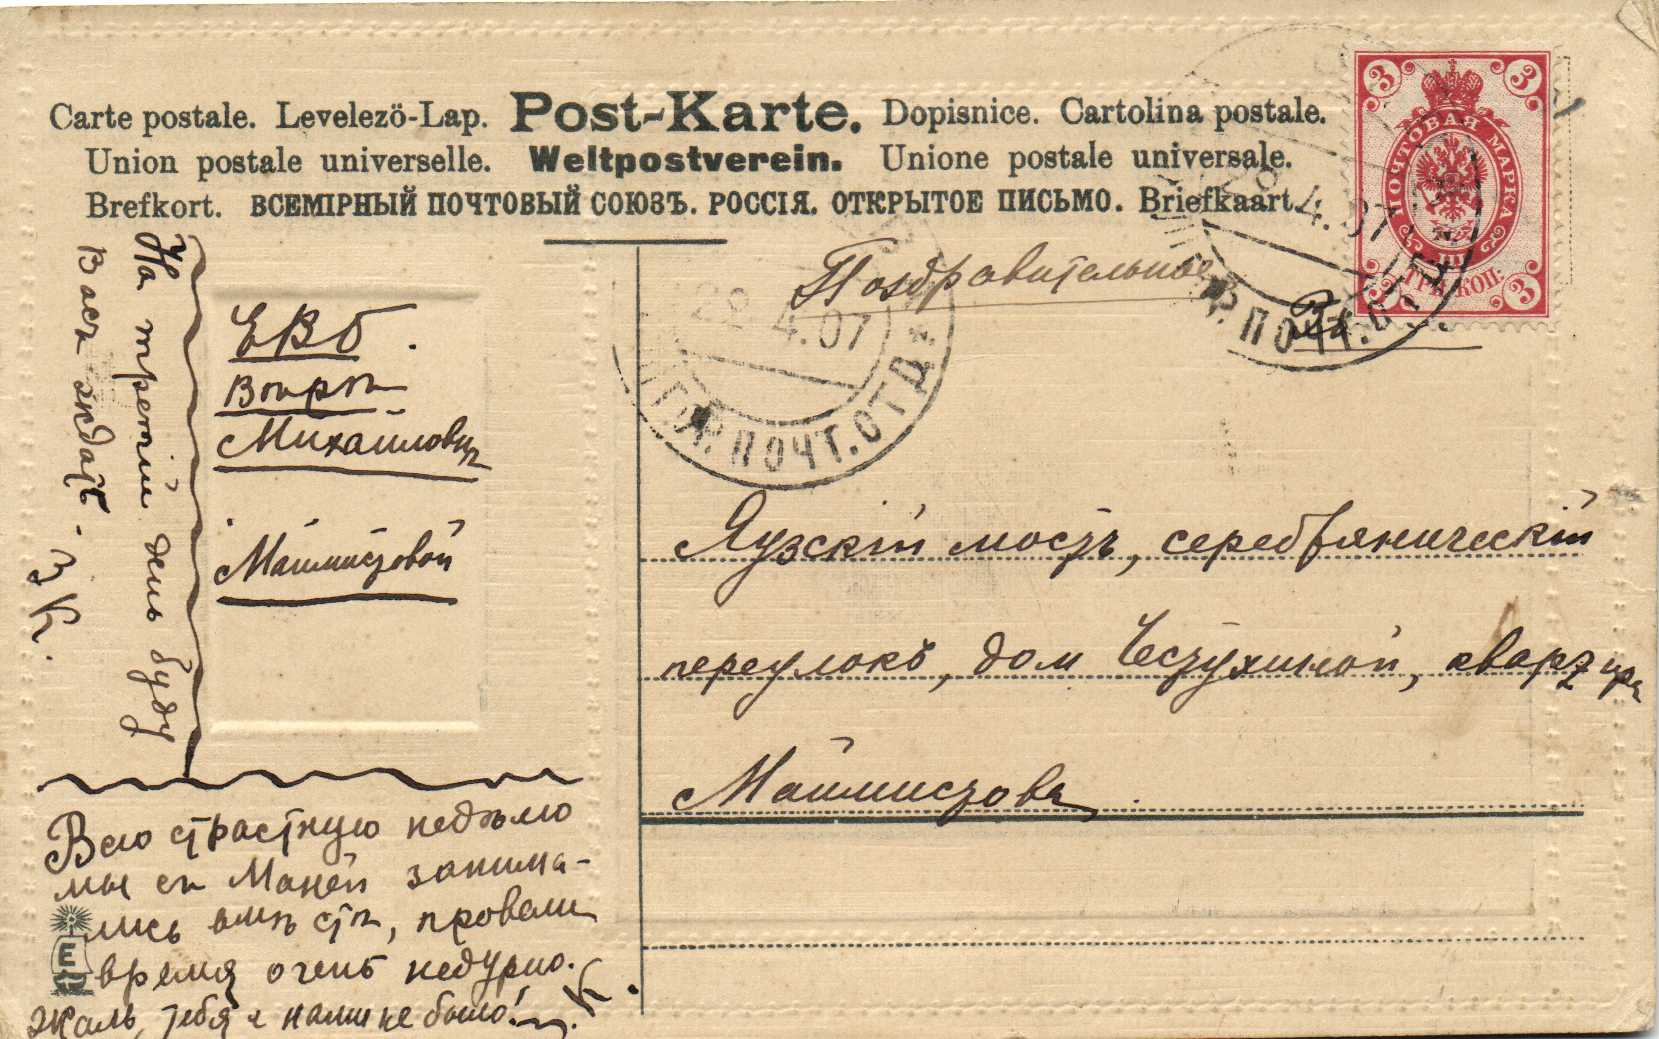 Carte postale. Levelezö-Lap. Post-Karte. Dopisnice. Cartolina postale.
Union postale universelle. Weltpostverein. Unione postale universale.
Brefkort. ВСЕМІРНЫЙ ПОЧТОВЫЙ СОЮЗЪ. РОССІЯ. ОТКРЫТОЕ ПИСЬМО. Briefkaart.
ПОЧТОВАЯ МАРКА
3 3
ТРИ КОП.
3 3
4.07
ГОР. ПОЧТ. ОТД.
22 4.07
ГОР. ПОЧТ. ОТД.
Поздравительное
На третій день буду
Васъ ждать. З К.
ЕВБ.
Михайловнѣ
Маймистовой
Яузскій мостъ, серебряническій
переулокъ, дом Чесухиной, квартира
Маймистова.
Всю страстную недѣлю
мы съ Маней занима-
лись вмѣстѣ, провели
время очень недурно.
Жаль, тебя с нами не было! К.
E